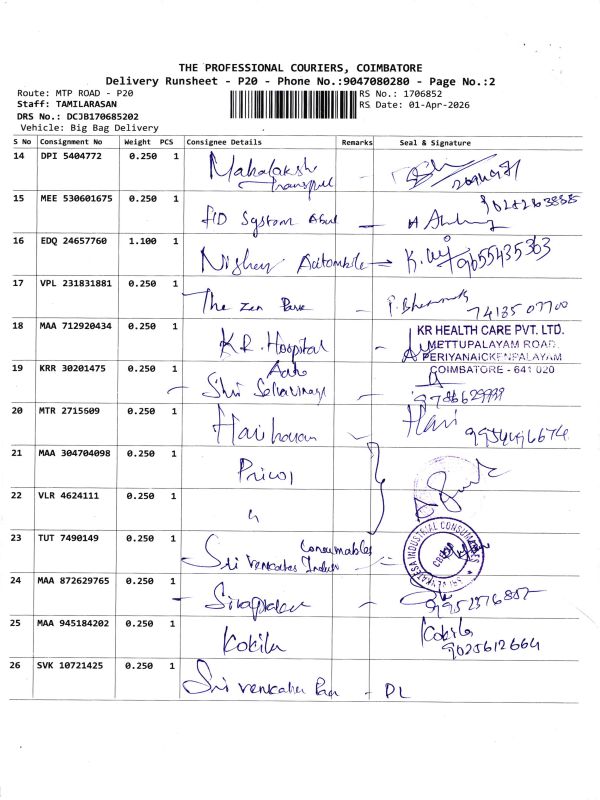 THE PROFESSIONAL COURIERS, COIMBATORE
Delivery Runsheet - P20 - Phone No.:9047080280 - Page No.:2
Route: MTP ROAD - P20
RS No.: 1706852
Staff: TAMILARASAN
RS Date: 01-Apr-2026
DRS No.: DCJB170685202
Vehicle: Big Bag Delivery
S No Consignment No Weight PCS Consignee Details Remarks Seal & Signature
14 DPI 5404772 0.250 1 Mahalakshmi
Transport
15 MEE 530601675 0.250 1 FID System
16 EDQ 24657760 1.100 1 Automobile 9655435363
17 VPL 231831881 0.250 1 The Zen Park 74135 07700
18 MAA 712920434 0.250 1 K.R. Hospital KR HEALTH CARE PVT. LTD.
METTUPALAYAM ROAD,
PERIYANAICKENPALAYAM
COIMBATORE - 641 020
19 KRR 30201475 0.250 1 Auto
Shri Selvavinayaga
20 MTR 2715609 0.250 1 Hariharan Hari
21 MAA 304704098 0.250 1 Pricol
22 VLR 4624111 0.250 1 "
23 TUT 7490149 0.250 1 Sri Venkatesa Indus Consumables SRI VENKATESA INDUSTRIAL CONSUMABLES
24 MAA 872629765 0.250 1
25 MAA 945184202 0.250 1 Kokila Kokila
9025612664
26 SVK 10721425 0.250 1 Sri Venkatesa - DL